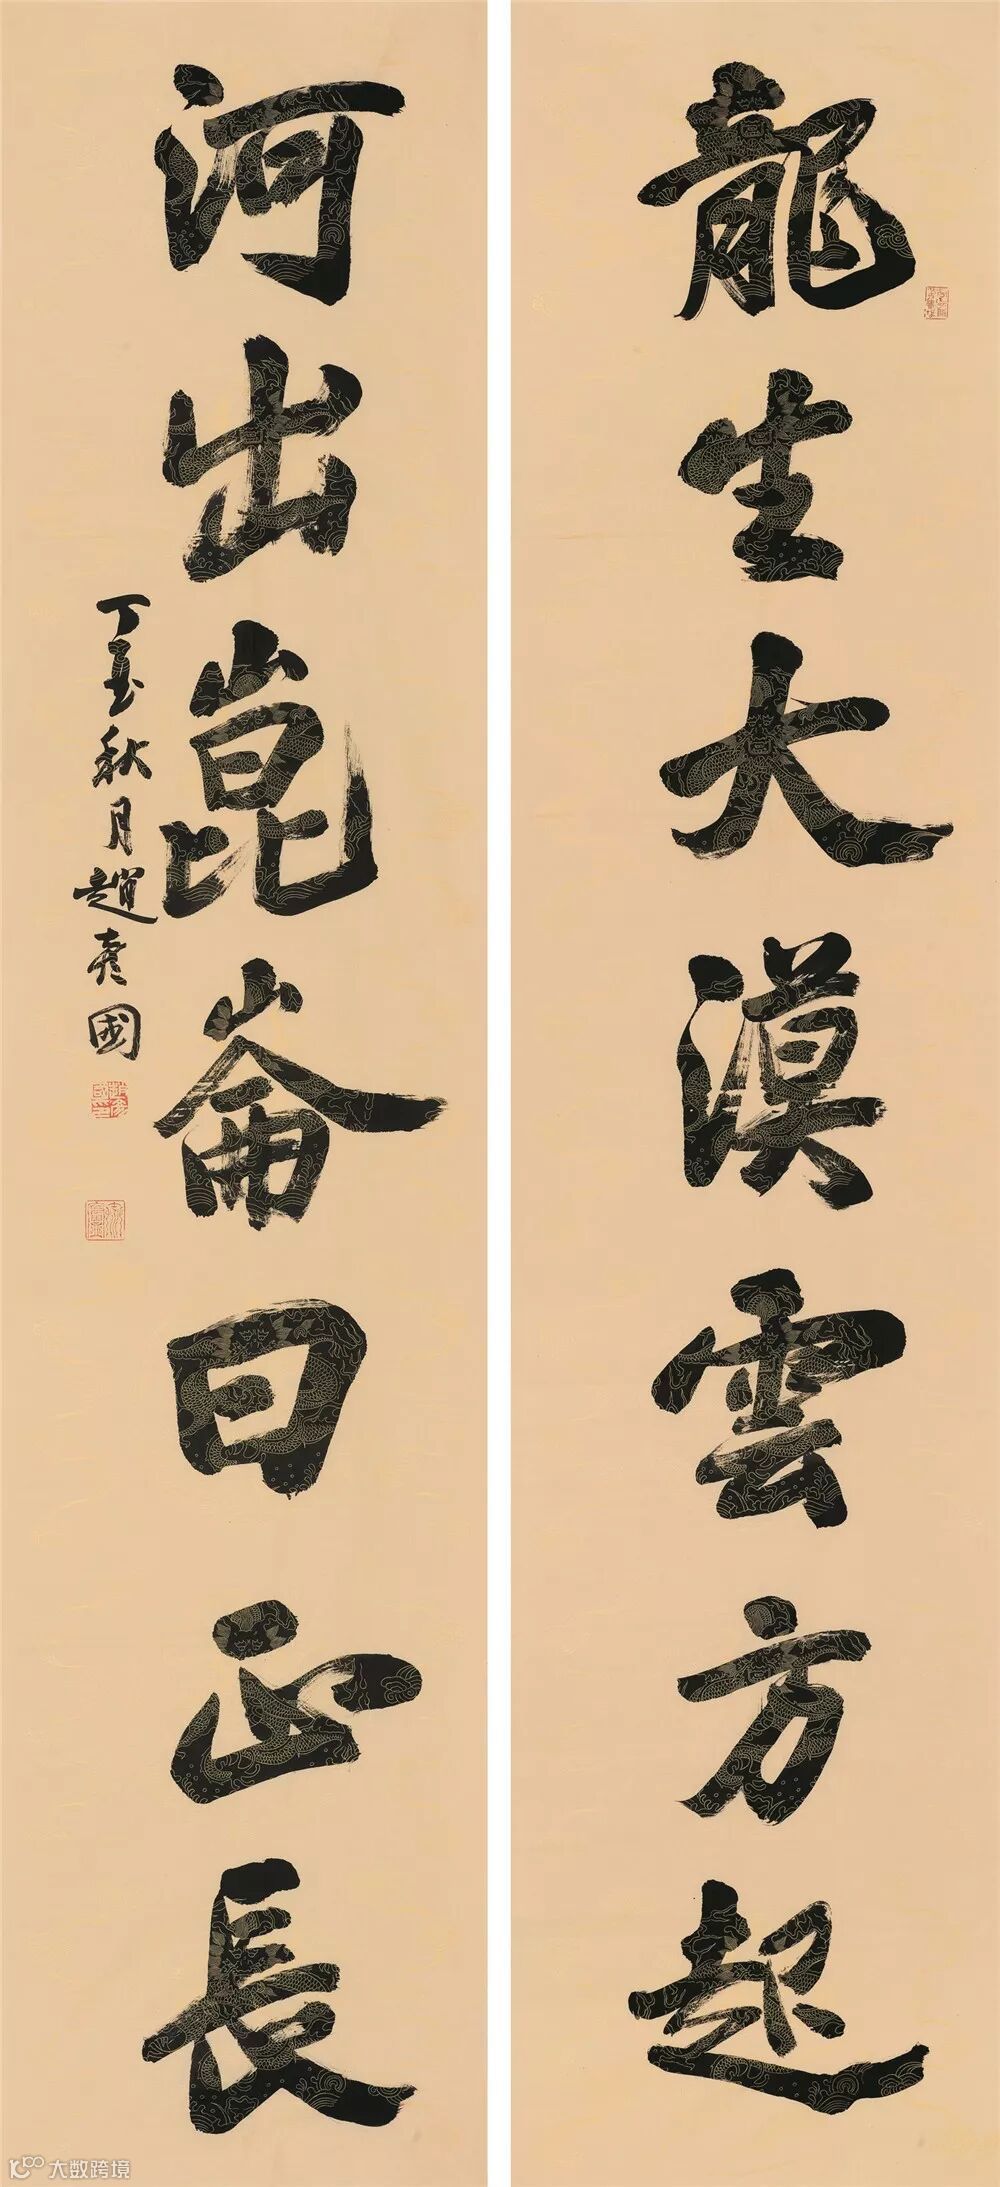 龍生大漠雲方起
河出崑崙日正長
丁亥秋月趙彥國
大数跨境